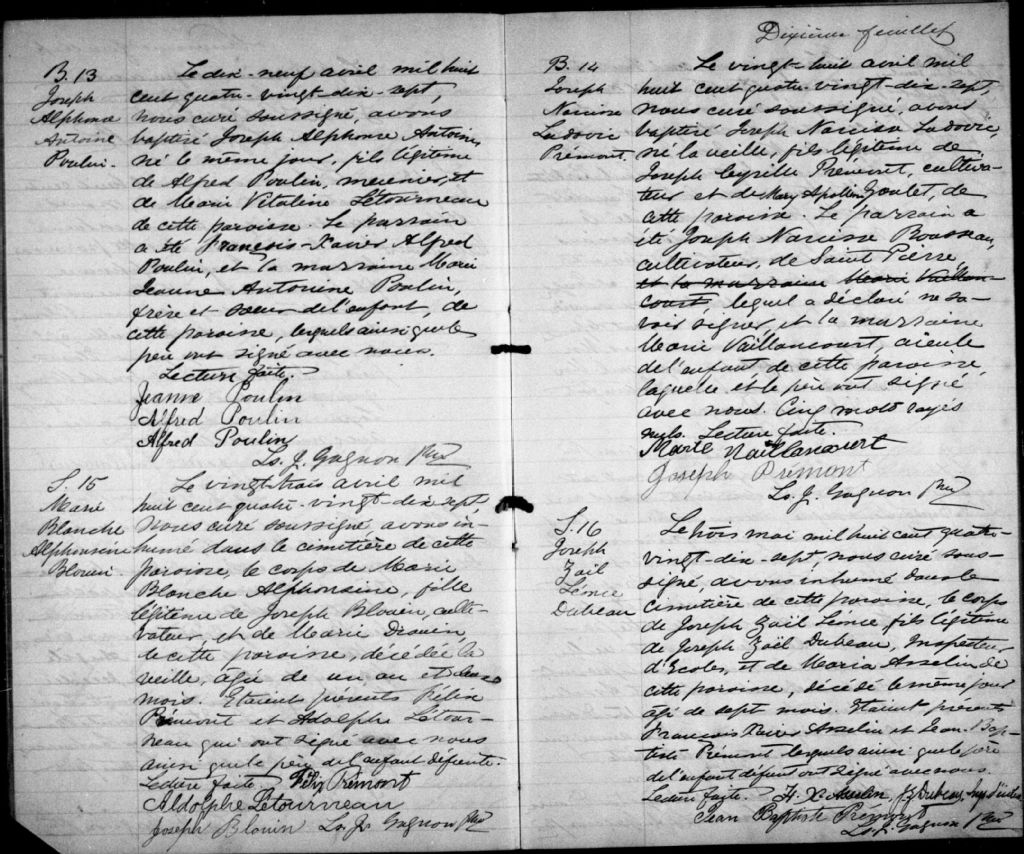 B. 13
Joseph
Alphonse
Antoine
Poulin.
Le dix-neuf avril mil huit
cent quatre-vingt-dix-sept,
nous curé soussigné, avons
baptisé Joseph Alphonse Antoine,
né le même jour, fils légitime
de Alfred Poulin, meunier, et
de Marie Vitaline Létourneau
de cette paroisse. Le parrain
a été François-Xavier Alfred
Poulin, et la marraine Marie
Jeanne Antonine Poulin,
frère et soeur de l'enfant, de
cette paroisse, lesquels ainsi que le
père ont signé avec nous.
Lecture faite.
Jeanne Poulin
Alfred Poulin
Alfred Poulin
Ls. J. Gagnon Ptre
S. 15
Marie
Blanche
Alphonsine
Blouin.
Le vingt-trois avril mil
huit cent quatre-vingt-dix-sept,
nous curé soussigné avons in-
humé dans le cimetière de cette
paroisse, le corps de Marie
Blanche Alphonsine, fille
légitime de Joseph Blouin, culti-
vateur, et de Marie Drouin,
de cette paroisse, décédée la
veille, agée de un an et
mois. Etaient présents Félix
Prémont et Adolphe Létour-
neau qui ont signé avec nous
ainsi que le père de l'enfant défunte.
Lecture faite. Félix Prémont
Aldolphe Létourneau
Joseph Blouin Ls. J. Gagnon Ptre
Dixième feuillet
B. 14
Joseph
Narcisse
Ladovic
Prémont.
Le vingt-huit avril mil
huit cent quatre-vingt-dix-sept,
nous curé soussigné, avons
baptisé Joseph Narcisse Ladovic,
né la veille, fils légitime de
Joseph Cyrille Prémont, cultiva-
teur et de Mary Apolline Goulet, de
cette paroisse. Le parrain a
été Joseph Narcisse Rousseau,
cultivateur, de Saint Pierre,
et la marraine Marie Vaillan-
court, lequel a déclaré ne sa-
voir signer, et la marraine
Marie Vaillancourt, aieule
de l'enfant de cette paroisse,
laquelle et le père ont signé
avec nous. Cinq mots rayés
nuls. Lecture faite.
Marie Vaillancourt
Joseph Prémont
Ls. J. Gagnon Ptre
S. 16
Joseph
Zoël
Léonce
Dubeau
Le trois mai mil huit cent quatre-
vingt-dix-sept, nous curé sous-
signé, avons inhumé dans le
cimetière de cette paroisse, le corps
de Joseph Zoël Léonce, fils légitime
de Joseph Zoël Dubeau, Inspecteur
d'Ecoles, et de Maria Asselin de
cette paroisse, décédé le même jour
agé de sept mois. Etaient présents
François Xavier Asselin et Jean-Bap-
tiste Prémont lesquels ainsi que le père
de l'enfant défunt ont signé avec nous.
Lecture faite. F. X. Asselin, J Z Dubeau,
Jean Baptiste Prémont
Ls. J. Gagnon Ptre